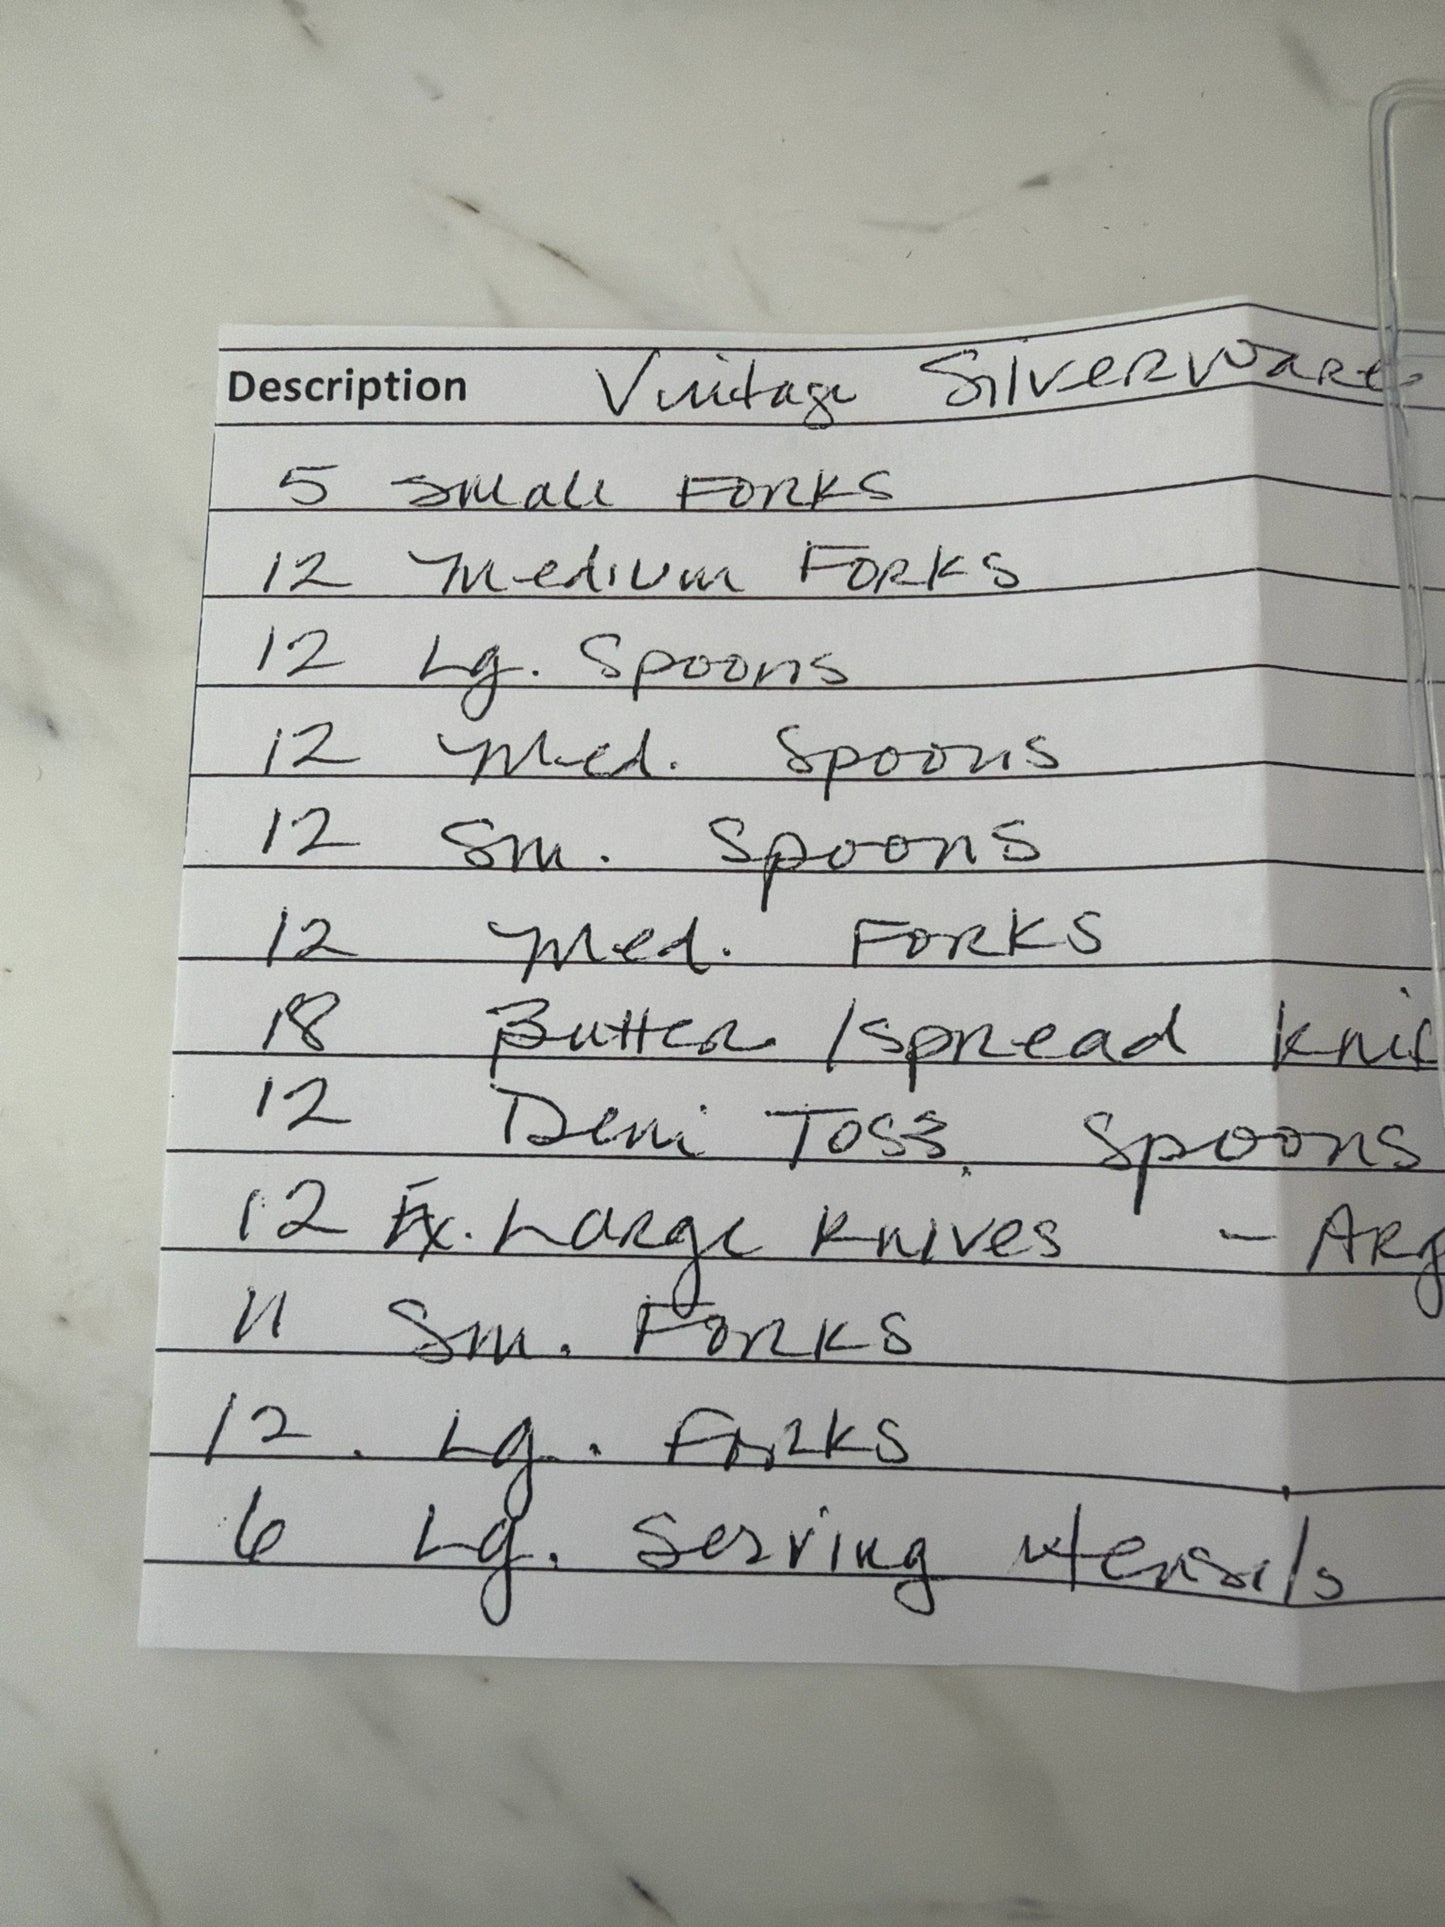 Description Vintage Silverware
5 Small Forks
12 Medium Forks
12 Lg. Spoons
12 Med. Spoons
12 Sm. Spoons
12 Med. Forks
18 Butter /spread knif
12 Demi Toss. Spoons
12 Ex. Large Knives - Arg
11 Sm. Forks
12. Lg. Forks
6 Lg. Serving utensils